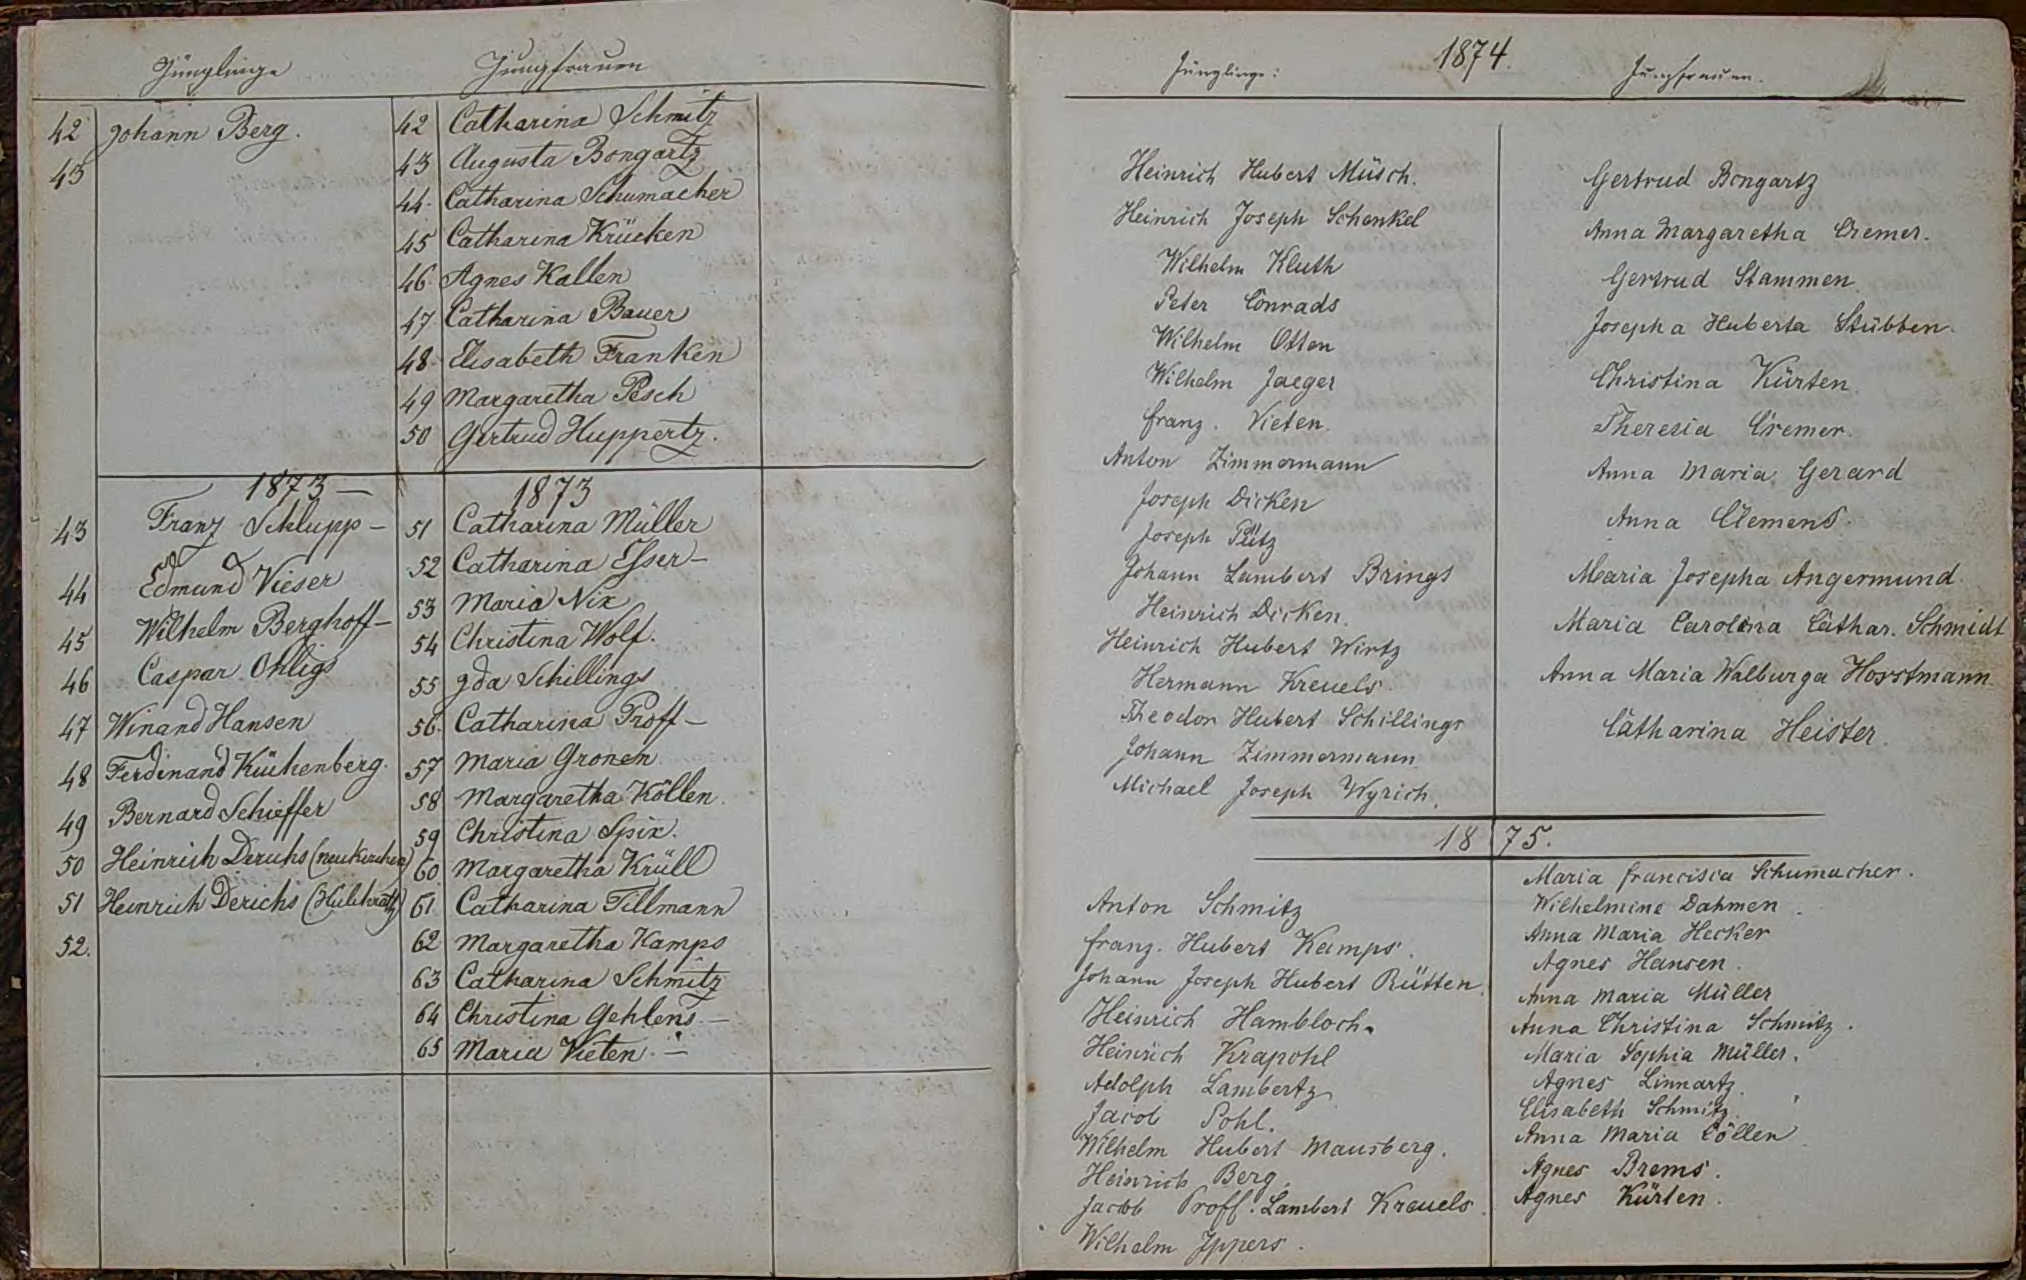 Jünglinge
Jungfrauen
42 Johann Berg.
43
42 Catharina Schmitz
43 Augusta Bongartz
44. Catharina Schumacher
45 Catharina Krücken
46. Agnes Kallen
47 Catharina Bauer
48. Elisabeth Franken
49 Margaretha Pesch
50 Gertrud Huppertz.
1873 —
43 Franz Schlupp —
44 Edmund Vieser
45 Wilhelm Berghoff —
46 Caspar Ohligs
47 Winand Hansen
48 Ferdinand Küchenberg.
49 Bernard Schieffer
50 Heinrich Derichs (Neukirchen)
51 Heinrich Derichs (Hülchrath)
52.
1873
51 Catharina Müller
52 Catharina Esser —
53 Maria Nix
54 Christina Wolf.
55 Ida Schillings
56. Catharina Proff —
57 Maria Gronen
58 Margaretha Köllen.
59 Christina Spix.
60 Margaretha Krüll
61 Catharina Tillmann
62 Margaretha Kamps
63 Catharina Schmitz
64 Christina Gehlens —
65 Maria Vieten. —
1874.
Jünglinge:
Jungfrauen.
Heinrich Hubert Müsch.
Heinrich Joseph Schenkel
Wilhelm Kluth
Peter Conrads
Wilhelm Otten
Wilhelm Jaeger
Franz. Vieten.
Anton Zimmermann
Joseph Dicken
Joseph Pütz
Johann Lambert Brings
Heinrich Dicken.
Heinrich Hubert Wirtz
Hermann Kreuels.
Theodor Hubert Schillings
Johann Zimmermann
Michael Joseph Wyrich.
Gertrud Bongartz
Anna Margaretha Cremer.
Gertrud Stammen
Josepha Huberta Stübben.
Christina Kürten
Theresia Cremer.
Anna Maria Gerard
Anna Clemens.
Maria Josepha Angermund
Maria Carolina Cathar. Schmidt
Anna Maria Walburga Horstmann.
Catharina Heister.
1875.
Anton Schmitz
Franz. Hubert Kamps.
Johann Joseph Hubert Rütten
Heinrich Hambloch.
Heinrich Krapohl
Adolph Lambertz
Jacob Pohl.
Wilhelm Hubert Mausberg.
Heinrich Berg.
Jacob Proff. Lambert Kreuels.
Wilhelm Ippers.
Maria Francisca Schumacher.
Wilhelmine Dahmen.
Anna Maria Hecker
Agnes Hansen.
Anna Maria Müller
Anna Christina Schmitz.
Maria Sophia Müller.
Agnes Linnartz.
Elisabeth Schmitz.
Anna Maria Cöllen
Agnes Brems.
Agnes Kürten.